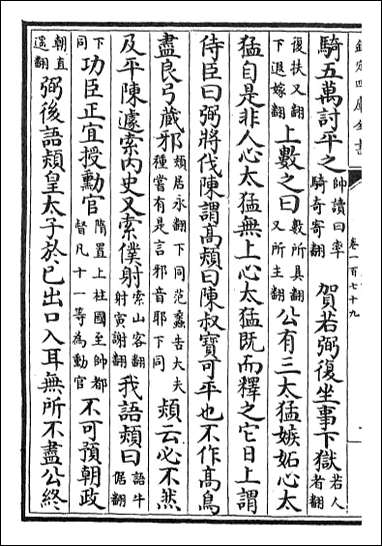 欽定四庫全書
卷一百七十九
騎五萬討平之帥讀曰率騎奇寄翻賀若弼復坐事下獄若人者翻
復扶又翻下退嫁翻上數之曰數所具翻又所主翻公有三太猛嫉妬心太
猛自是非人心太猛無上心太猛既而釋之它日上謂
侍臣曰弼將伐陳謂高熲曰陳叔寶可平也不作高鳥
盡良弓藏邪熲居永翻下同范蠡告大夫種嘗有是言邪音耶下同熲云必不然
及平陳遽索内史又索僕射索山客翻射寅謝翻我語熲曰語牛倨翻
下同功臣正宜授勲官隋置上柱國至帥都督凡十一等為勲官不可預朝政
朝直遥翻弼後語熲皇太子於已出口入耳無所不盡公終